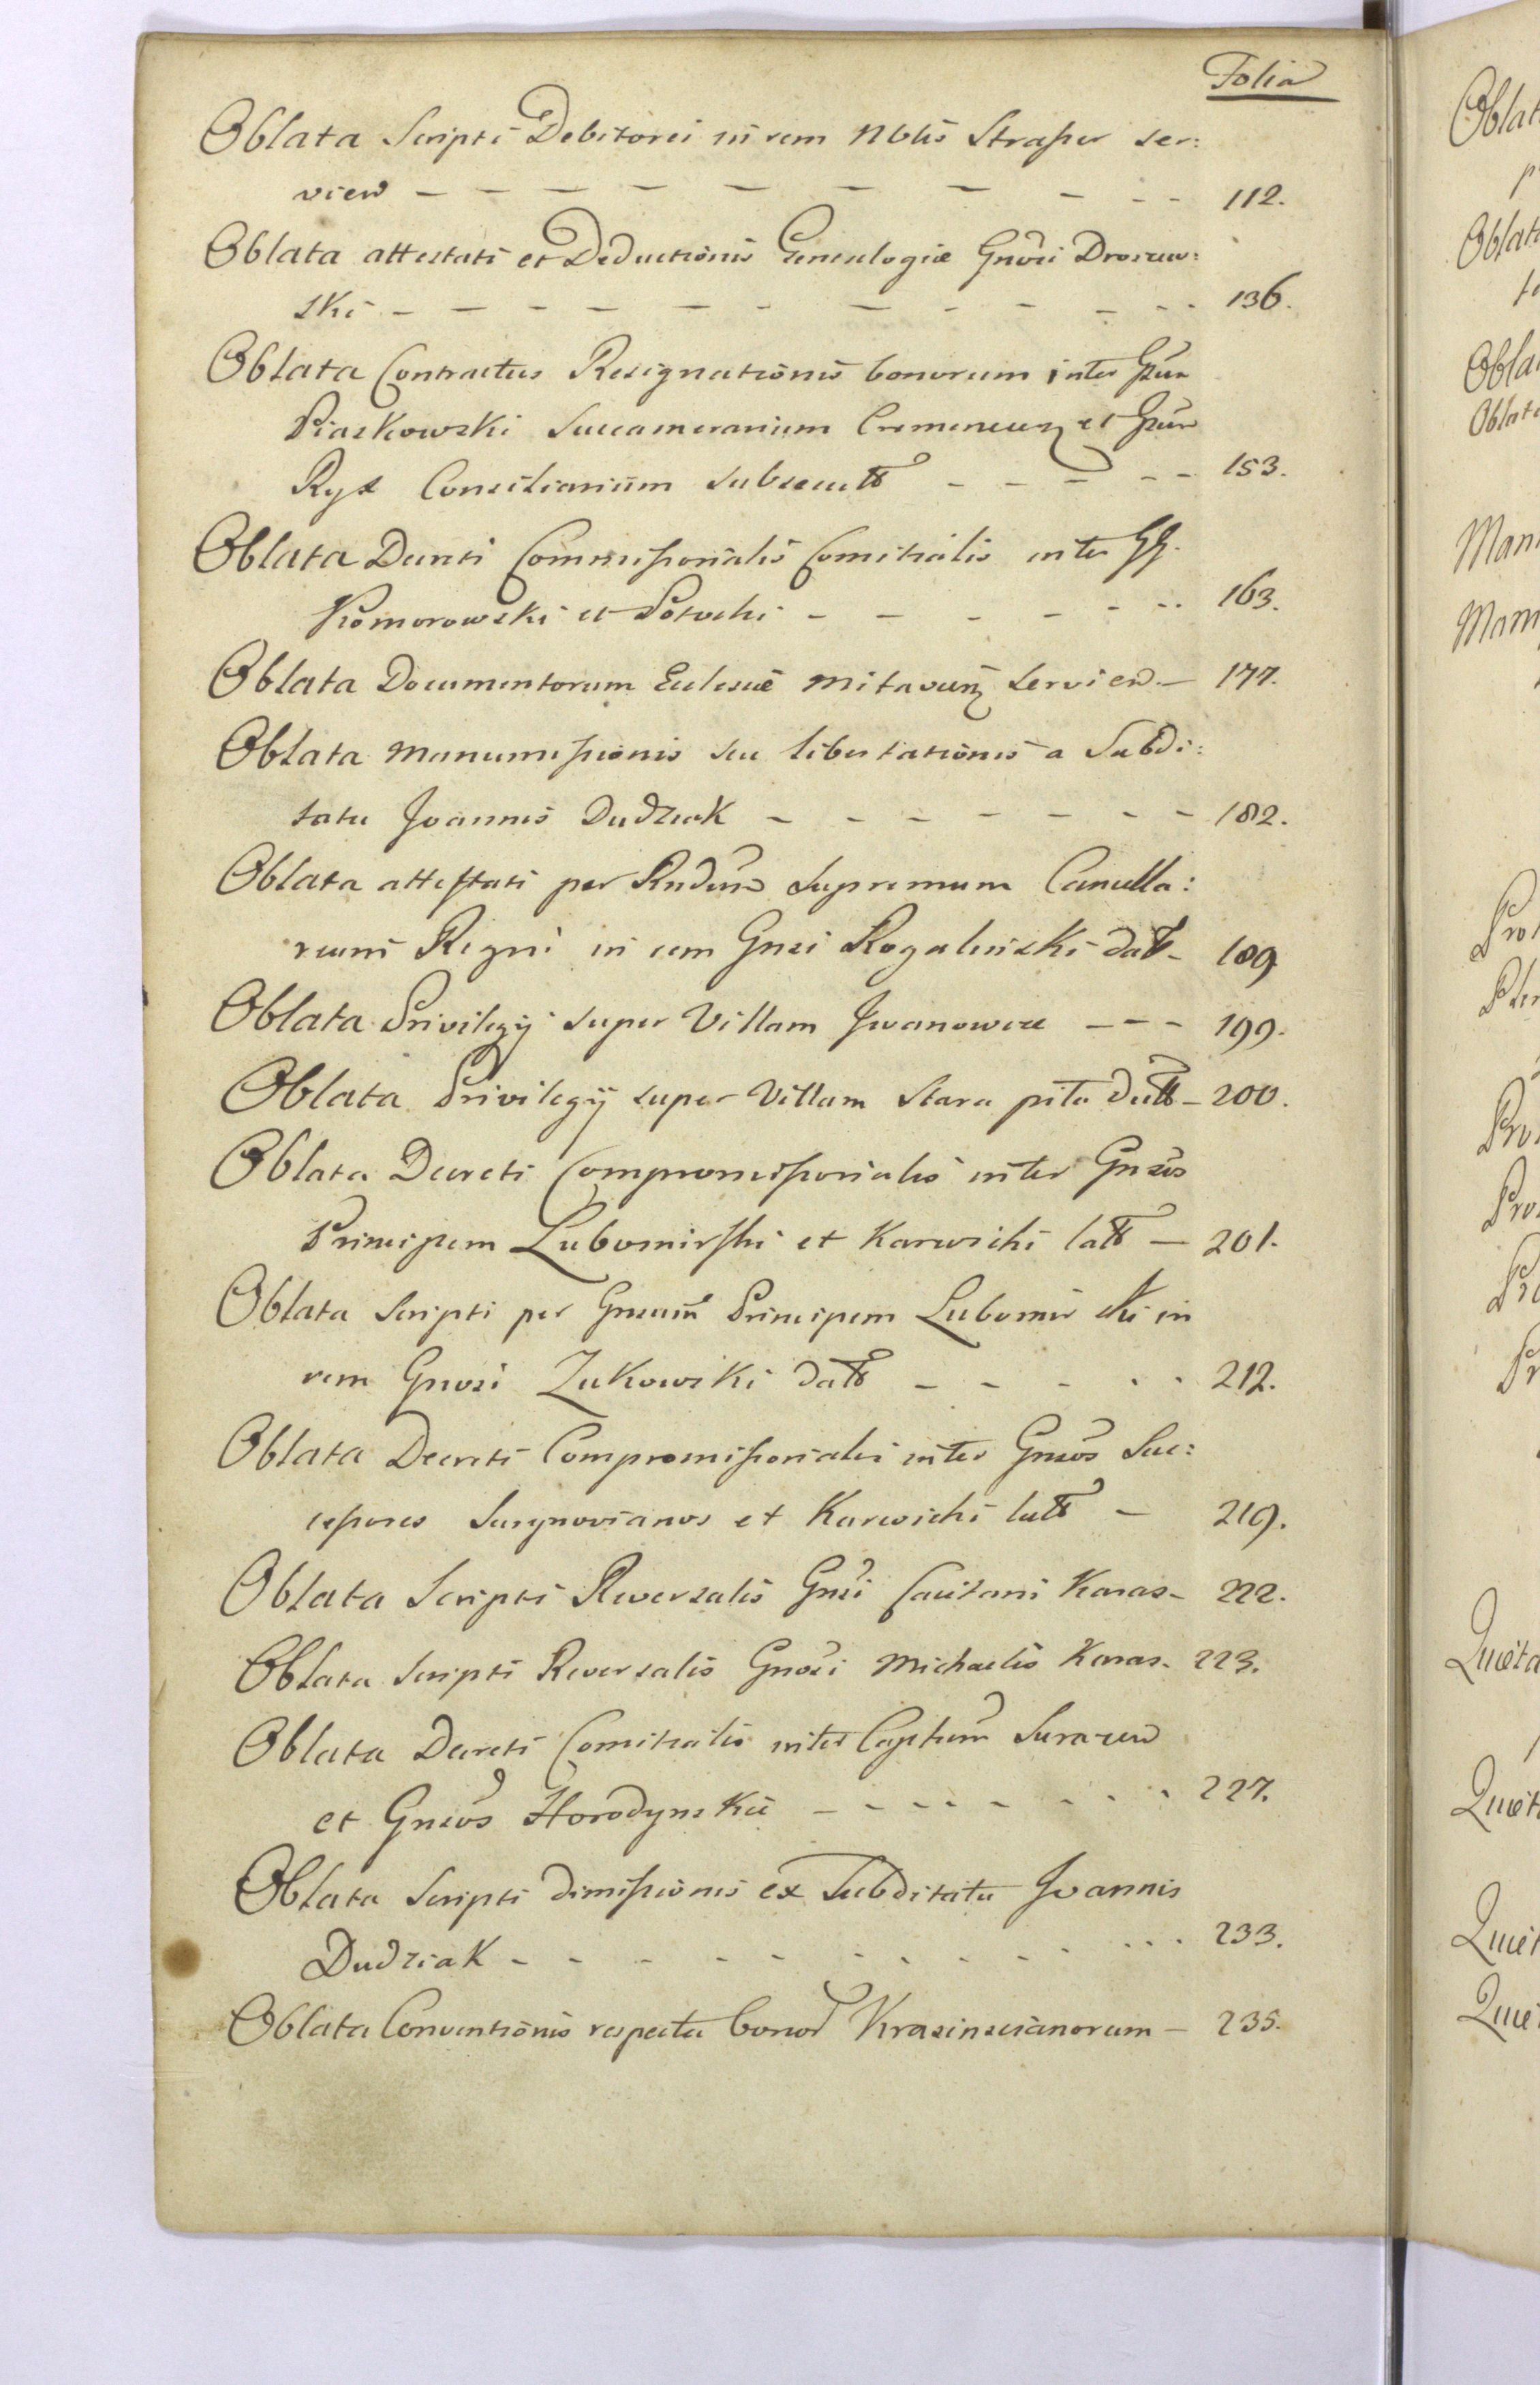 Folia
Oblata Scripti Debitorei in rem Nblis Strasser ser:
vien — — — — — — — — - - 112.
Oblata attestati et Deductionis Genealogiæ Gnosi Drozew:
ski - — — — — - — - - — - - 136.
Oblata Contractus Resignationis bonorum inter
Piaskowski Succamerarium Cremenecen et
Ryx Consiliarium subsecutt - - - - - 153.
Oblata Decreti Commissorialis Comitialis inter GG.
Komorowski et Potocki - — - - - - 163.
Oblata Documentorum Eclesiæ servien — 177.
Oblata Manumissionis seu libertationis a Subdi:
tatu Joannis Dudziak - - - - - - - 182.
Oblata attestati per Rndum Supremum Cancella:
rium Regni in rem Gnsi Rogalinski datt - 189
Oblata Privilegij super Villam Jwanowce --- 199.
Oblata Privilegij super Villam Stara pita datt - 200.
Oblata Decreti Compromissorialis inter Gnsos
Principem Lubomirski et Karwicki latt — 201.
Oblata Scripti per Gnsum Principem Lubomirski in
rem Gnosi Zukowski datt - - - - - 212.
Oblata Decreti Compromissorialis inter Gnsos Suc:
cessores et Karwicki latt - 219.
Oblata Scripti Reversalis Gnsi Caietani Karas - 222.
Oblata Scripti Reversalis Gnosi Michaelis Karas - 223.
Oblata Decreti Comitialis inter Capitum
et Gnsos Horodynskie - - - - - - - - 227.
Oblata Scripti dimissionis ex Subditatu Joannis
Dudziak - - - - - - - - - - - 233.
Oblata Conventionis respectu bonor Krasinscianorum — 235.